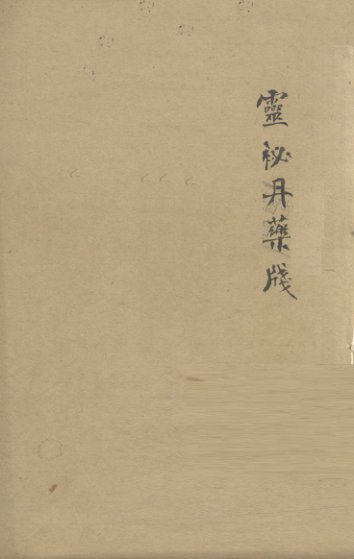 靈祕丹藥牋